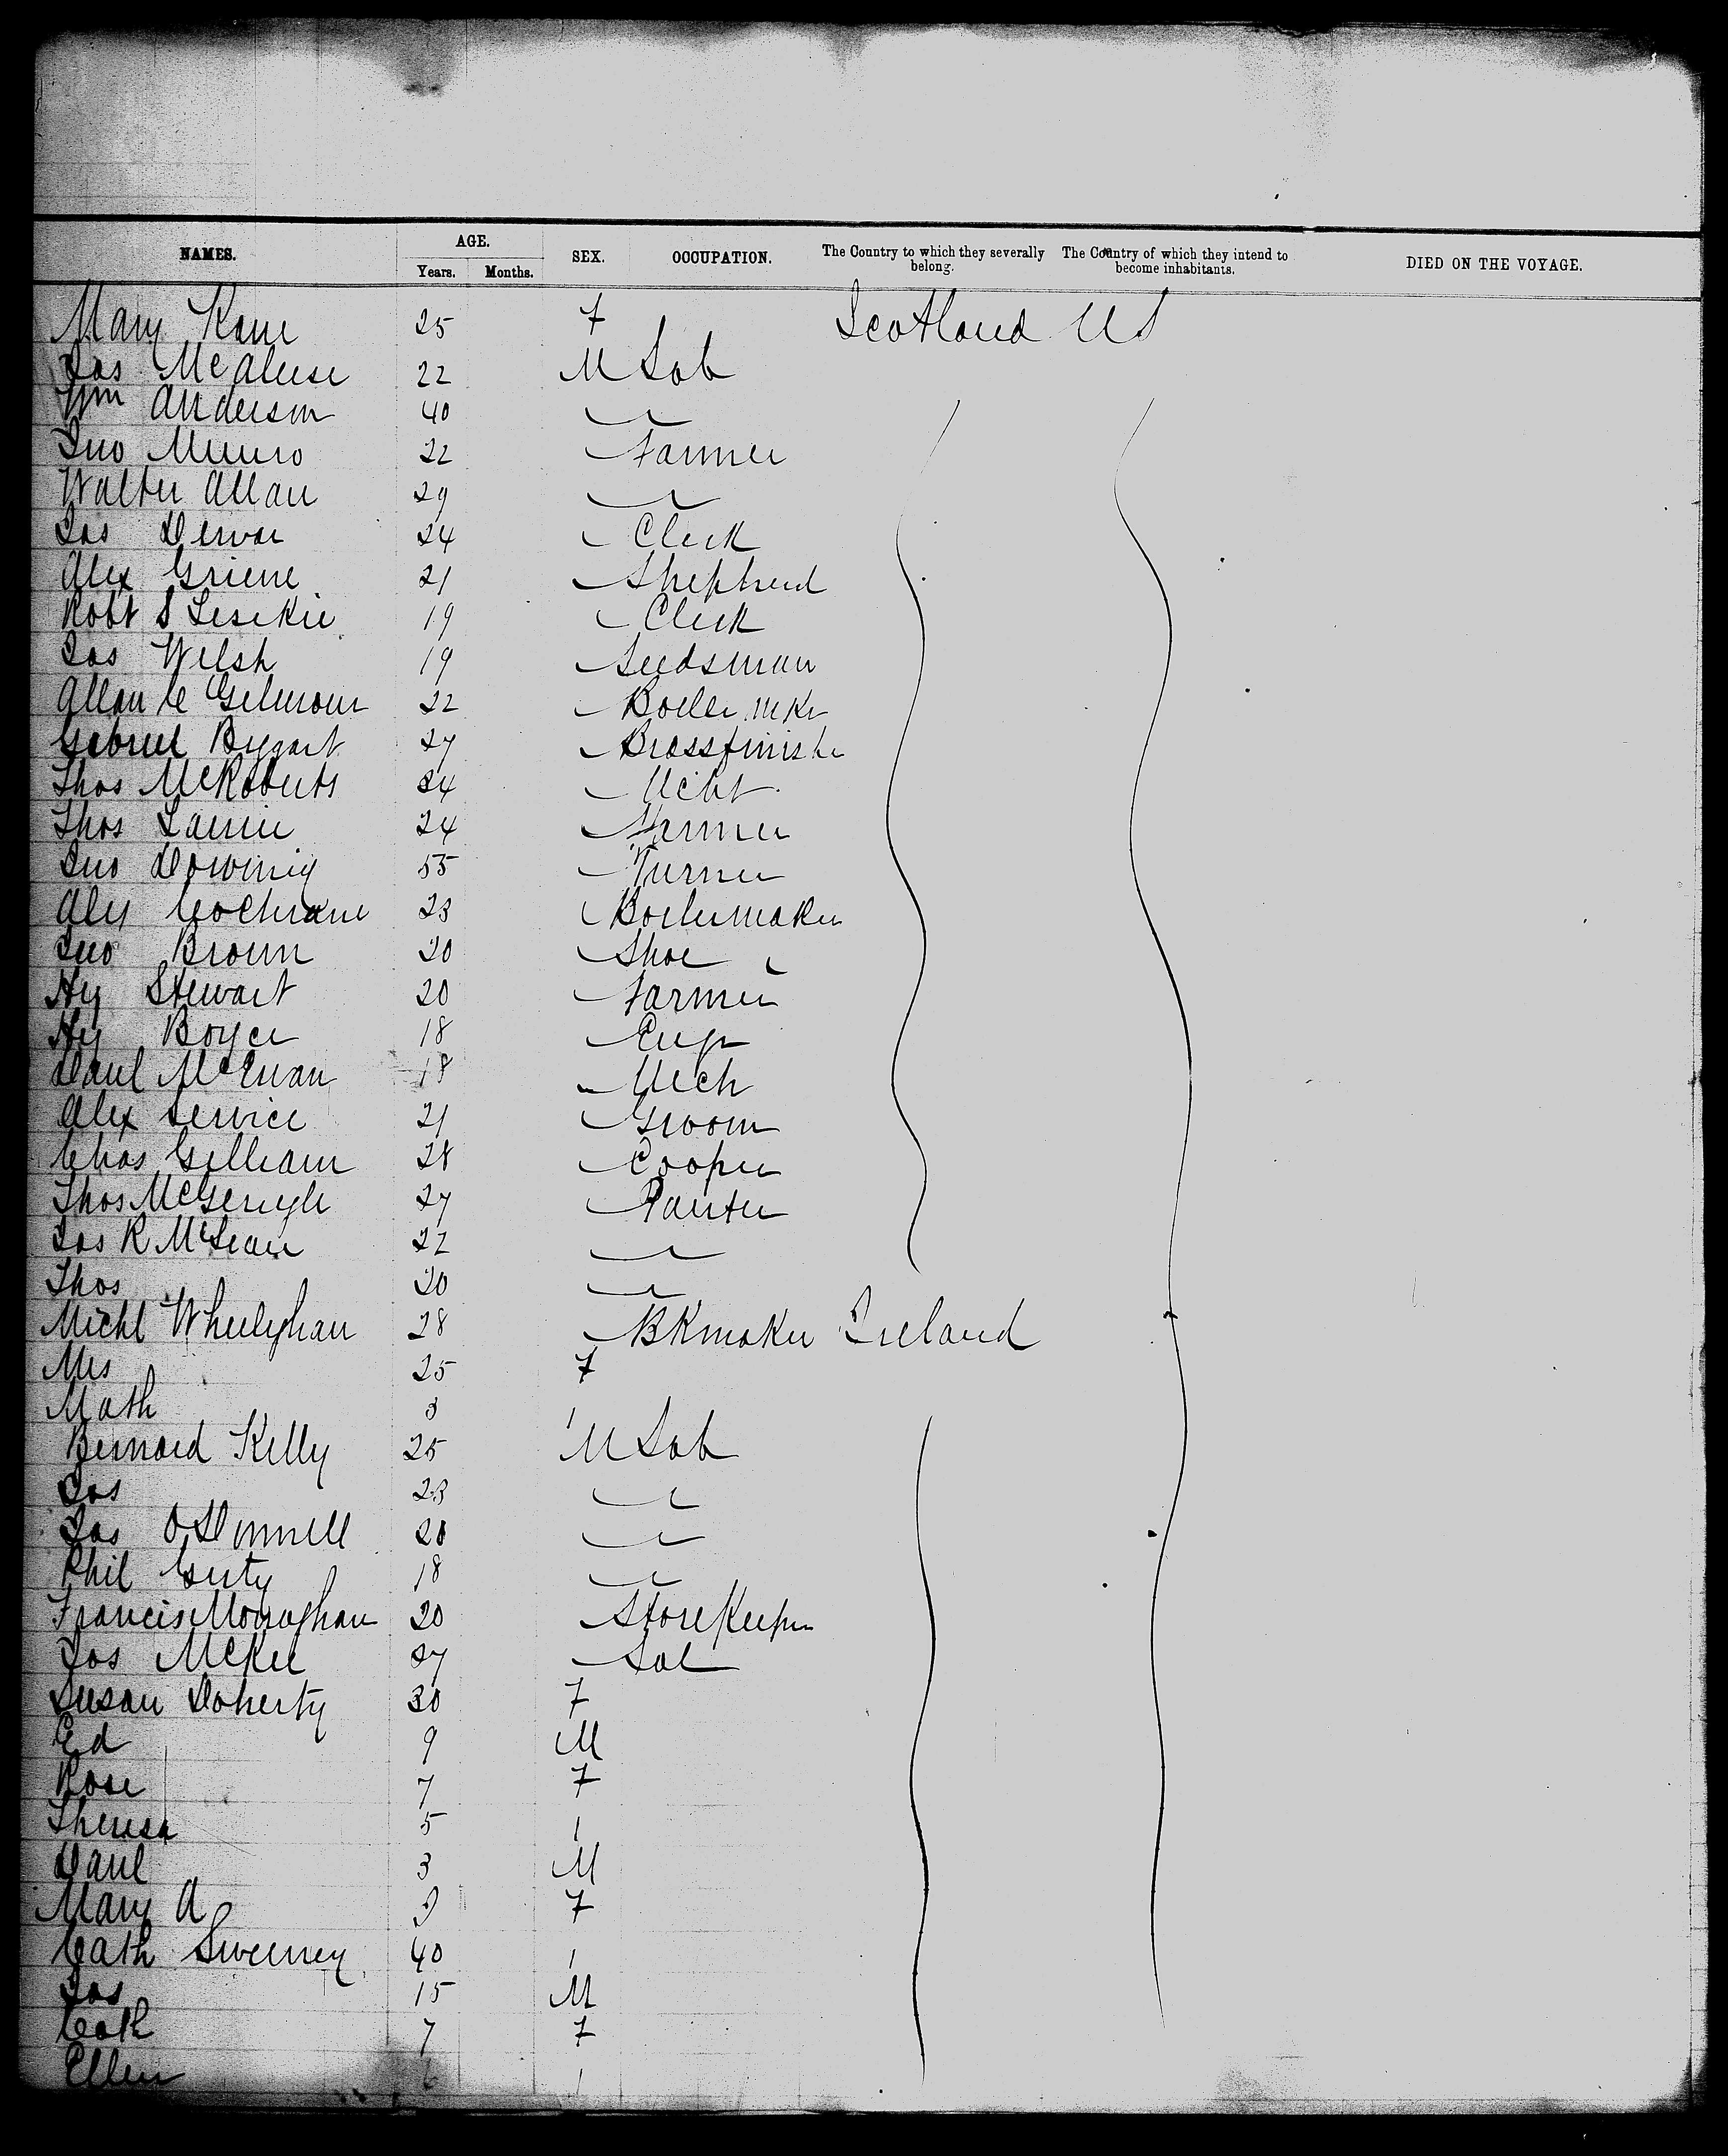 NAMES. AGE. Years. Months. SEX. OCCUPATION. The Country to which they severally belong. The Country of which they intend to become inhabitants. DIED ON THE VOYAGE.
Mary Kane 25 F Scotland US
Jas McAleese 22 M Lab
Wm Anderson 40
Jno Munro 22 Farmer
Walter Allan 29
Jas 24 Clerk
Alex 21 Shepherd
Robt S 19 Clerk
Jas Welsh 19 Seedsman
Allan C Gilmour 22 Boiler mkr
Gabriel 27 Brassfinisher
Thos McRoberts 24
Thos Lawrie 24 Farmer
Jno Downing 55 Turner
Alex Cochrane 23 Boilermaker
Jno Brown 20 Shoe
Hy Stewart 20 Farmer
Hy Boyce 18 Engr
Danl McEwan 18 Mech
Alex Service 21 Groom
Chas Gilliam 28 Cooper
Thos 27 Painter
Jas R McLean 22
Thos 20
Michl Wheelyhan 28 Bkmaker Ireland
Mrs 25 F
Math 3
Bernard Kelly 25 M Lab
Jas 23
Jas O'Donnell 20
Phil 18
Francis Monaghan 20 Storekeeper
Jas McKee 27 Lab
Susan Doherty 30 F
Ed 9 M
Rose 7 F
Theresa 5
Danl 3 M
Mary A F
Cath Sweeney 40
Jas 15 M
Cath 7 F
Ellen 6